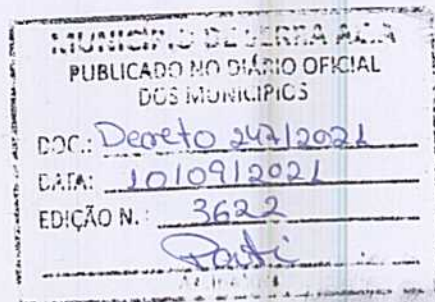 MUNICÍPIO DE SERRA ALTA
PUBLICADO NO DIÁRIO OFICIAL
DOS MUNICÍPIOS
DOC.: Decreto 247/2021
DATA: 10/09/2021
EDIÇÃO N.: 3622